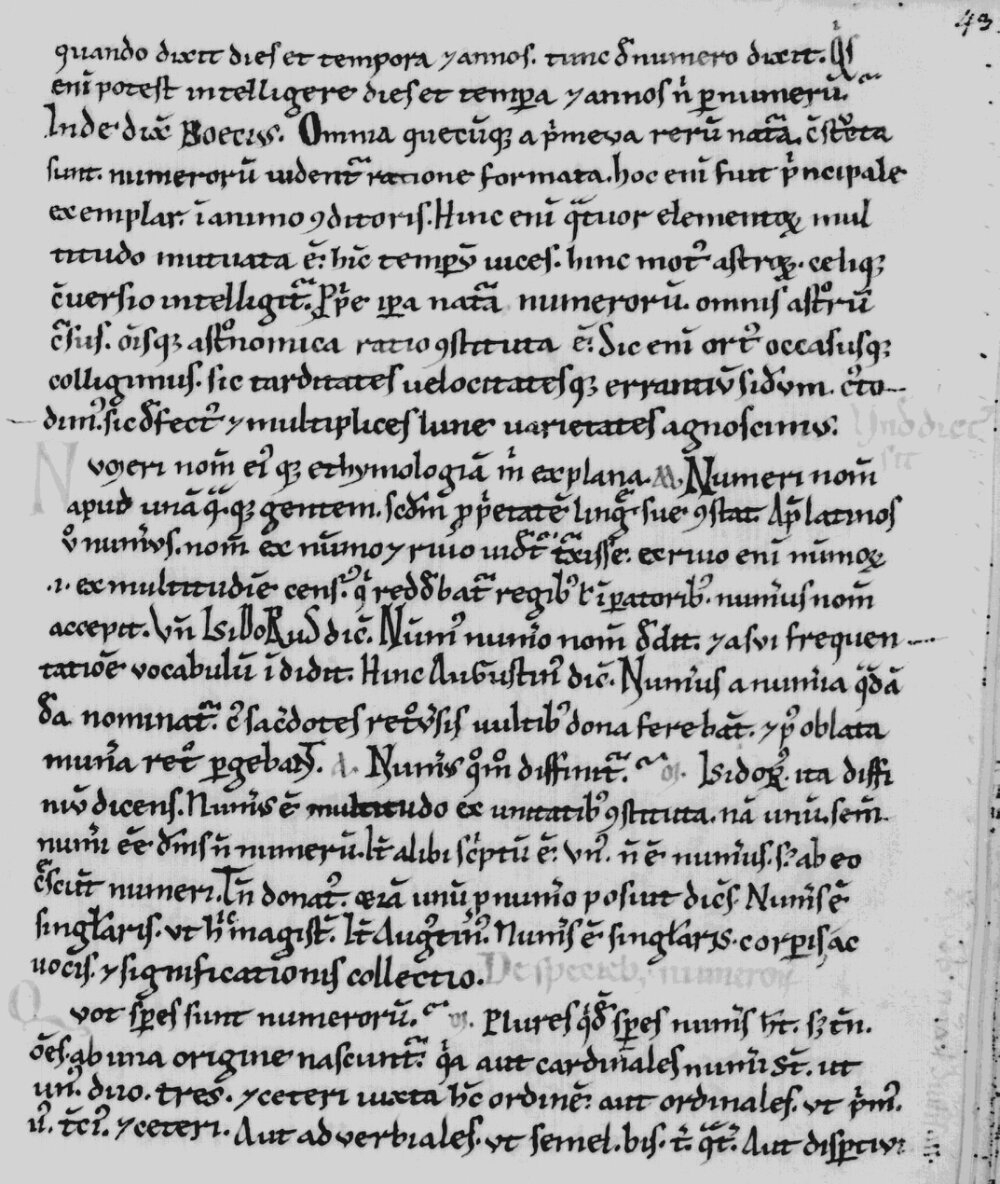 43
quando dixit dies et tempora ⁊ annos. tunc đ numero dixit. Q̇s
eni̅ potest intelligere dies et temꝑa ⁊ annos n̅ ꝑ numeru̅.
Inde dix̅ Boecius. Omnia quecu̅q; a p̍meva reru̅ nat̅a c̅st̅cta
sunt. numeroru̅ uident̅ ratione formata. hoc eni̅ fuit p̍ncipale
exemplar. i̅ animo ꝯditoris. Hinc eni̅ q̅tuor elementoꝝ mul
titudo mutuata e̅. hi̅c tempoꝝ uices. hinc mot᾽ astroꝝ. celiq;
c̅versio intelligit̅. P̱p̍e ip̅a nat̅a numeroru̅. omnis astroru̅
c̅sus. o̅isq; ast̊nomica ratio ꝯstituta e̅. Sic eni̅ ort᾽ occasusq;
colligimus. sic tarditates uelocitatesq; errantiu̅ siderum. c᾽to
dim᾽. sic đfect᾽ ⁊ multiplices lune uarietates agnoscimus.
Numeri nom̅ ei᾽ q; ethymologia̅ m̍ explana. M. Numeri nom̅
apud una̅ q̅q; gentem. scd̅m ꝓp̍etate̅ lingue sue ꝯstat. Ap̅ latinos
v̊ num̍us. nom̅ ex nu̅mo ⁊ riuo uidet̅ t̅xisse. ex riuo eni̅ nu̅moꝝ
.i. ex multitudi̅e census. q̍ reddebat̅ regib᾽ ł i̅ꝑatorib᾽. num̍us nom̅
accepit. Vn̅ Isidorus dic̅. Num᾽ num̍o nom̅ đdit. ⁊ a sui frequen
tatio̅e vocabulu̅ i̅didit. Hinc Augustin᾽ dic̅. Num̍us a num̍ia q̅da̅
đa nominat̅. c᾽ sac̍dotes ret̊v̍sis uultib᾽ dona fereba̅t. ⁊ p᾽ oblata
mun̍a ret̊ ꝑgeba̅t. Δ. Num̍us q̊m̊ diffinit̅. M. Isidor᾽ ita diffi
nit̅ dicens. Num̍us e̅ multitudo ex unitatib᾽ ꝯstituta. na̅ unu̅. sem̅
num̍i e̅e d̅ms n̅ numeru̅. It̅ alibi sc̍ptu̅ e̅. Vn᾽ n̅ e̅ num̍us. s; ab eo
c̅scu̅t numeri. Tn̅ donat᾽. etia̅ unu̅ p numi̍o posuit dic̅s. Num̍us e̅
singłaris. ut hic̅ magist̅. It̅ Aug᾽tin᾽. Num̍us e̅ singłaris. corp̍is ac
uocis. ⁊ significationis collectio. De specieb; numeroꝝ
Quot sp̅es sunt numeroru̅. M. Plures q̍đ sp̅es num̍us ht̅. s; tn̅
o̅es. ab una origine nascunt̅. q̍a aut cardinales num̍i st̅. ut
un᾽. duo. tres. ⁊ ceteri iuxta hc̅ ordine̅. aut ordinales. ut p̍m᾽.
ii᾽. t̅ci᾽. ⁊ ceteri. Aut adverbiales. ut semel. bis. t̍. q̅t̍. Aut disꝑtivi